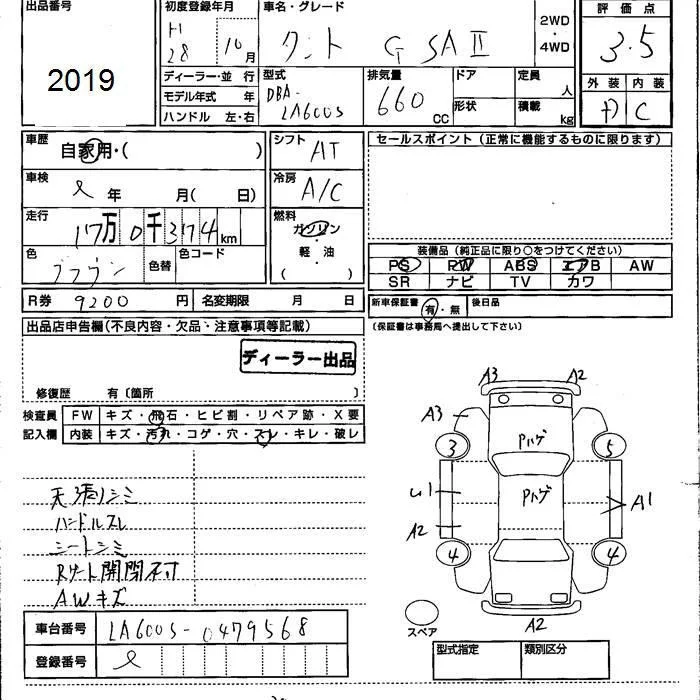 出品番号
2019
初度登録年月
H
28 10月
車名・グレード
タント G SAⅡ
2WD
・
4WD
評価点
3.5
外装 内装
D C
ディーラー・並行
モデル年式 年
ハンドル 左・右
型式
DBA-
LA600S
排気量
660 CC
ドア
形状
定員 人
積載 kg
車歴
自家用・( )
シフト
AT
車検
年 月( 日)
冷房
A/C
走行
17万0千374km
燃料
ガソリン
・
軽・油
( )
色
ブラウン
色替
色コード
R券 9200 円
名変期限 月 日
セールスポイント(正常に機能するものに限ります)
装備品(純正品に限り○をつけてください)
PS PW ABS エアB AW
SR ナビ TV カワ
新車保証書 有・無 後日品
(保証書は事務局へ提出して下さい)
出品店申告欄(不良内容・欠品・注意事項等記載)
ディーラー出品
修復歴 有〔箇所 〕
検査員
記入欄
FW キズ・飛石・ヒビ割・リペア跡・X要
内装 キズ・汚れ・コゲ・穴・スレ・キレ・破レ
天張リシミ
ハンドルスレ
シートシミ
Rゲート開閉不付
AWキズ
車台番号 LA600S-0479568
登録番号
A3 A2
A3
3 5
Pハゲ
Pハゲ
U1 A1
A2
4 4
A2
スペア
型式指定 類別区分